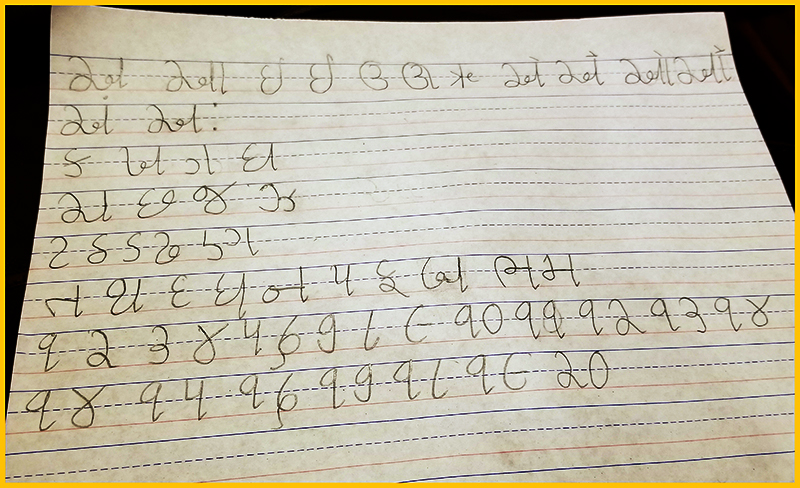 અ આ ઇ ઈ ઉ ઊ ઋ એ ઐ ઓ ઔ
અં અઃ
ક ખ ગ ઘ
ચ છ જ ઝ
ટ ઠ ડ ઢ ણ
ત થ દ ધ ન પ ફ બ ભ મ
૧ ૨ ૩ ૪ ૫ ૬ ૭ ૮ ૯ ૧૦ ૧૧ ૧૨ ૧૩ ૧૪
૧૪ ૧૫ ૧૬ ૧૭ ૧૮ ૧૯ ૨૦